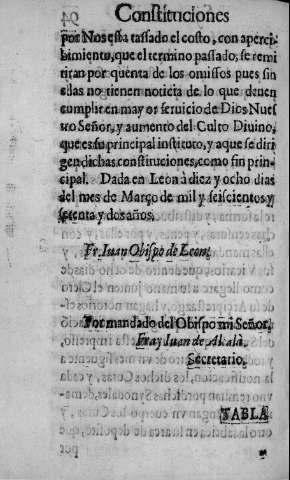 94 Constituciones
por Nos esta tassado el costo, con aperci-
bimiento, que el termino passado, se remi
tiran por quenta de los omissos pues sin
ellas no tienen noticia de lo que deuen
cumplir en mayor seruicio de Dios Nues
tro Señor, y aumento del Culto Diuino,
que es su principal instituto, y a que se diri
gen dichas constituciones, como fin prin-
cipal. Dada en Leon à diez y ocho dias
del mes de Março de mil y seiscientos y
setenta y dos años.
Fr. Iuan Obispo de Leon.
Por mandado del Obispo mi Señor,
Fray Juan de Alcalà.
Secretario.
TABLA